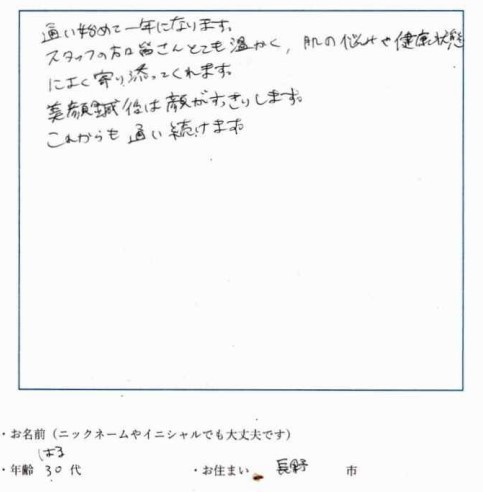 通い始めて一年になります。
スタッフの方は皆さんとても温かく、肌の悩みや健康状態
によく寄り添ってくれます。
美顔鍼後は顔がすっきりします。
これからも通い続けます。
・お名前（ニックネームやイニシャルでも大丈夫です）
はる
・年齢 30 代 ・お住まい 長野 市